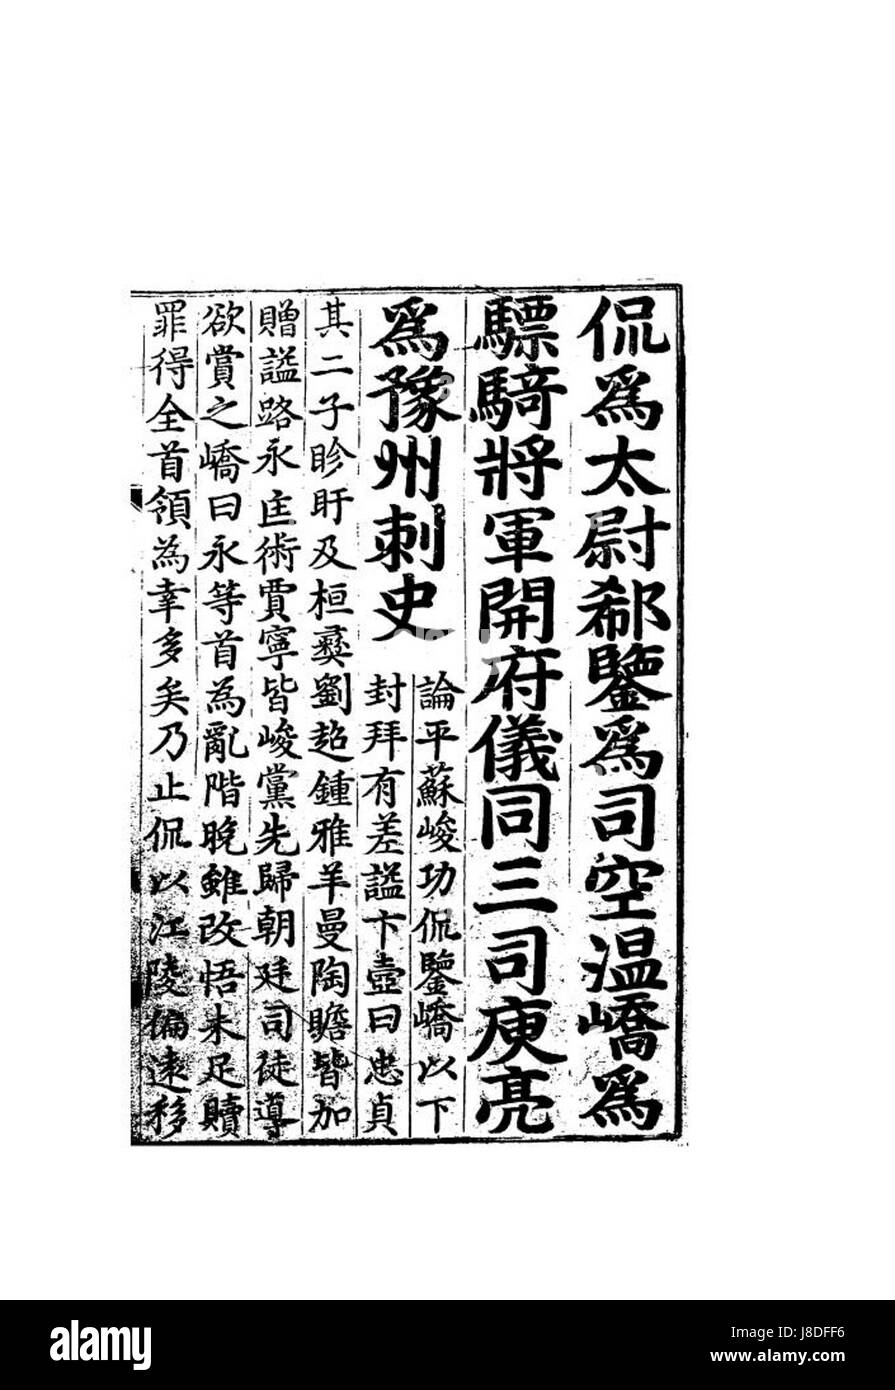 侃爲太尉郗鑒爲司空温嶠爲
驃騎將軍開府儀同三司庾亮
爲豫州刺史
論平蘇峻功侃鑒嶠以下
封拜有差謚卞壼曰忠貞
其二子眕盱及桓彜劉超鍾雅羊曼陶瞻皆加
贈謚路永匡術賈寧皆峻黨先歸朝廷司徒導
欲賞之嶠曰永等首為亂階晚雖改悟未足贖
罪得全首領為幸多矣乃止侃以江陵偏遠移
alamy
Image ID: J8DFF6
www.alamy.com